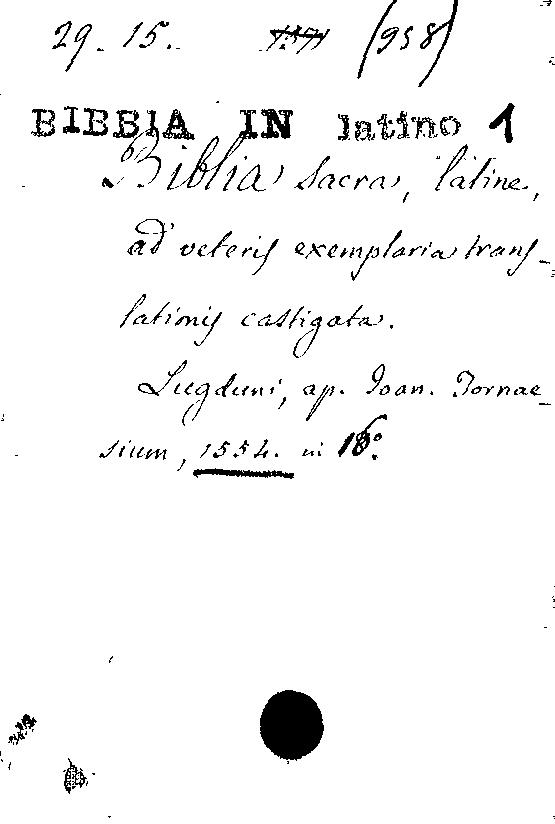 29. 15. (958)
BIBBIA IN latino 1
Biblia sacra, latine,
ad veteris exemplaria trans-
lationis castigata.
Lugduni, ap. Ioan. Tornae-
sium, 1554. in 16º